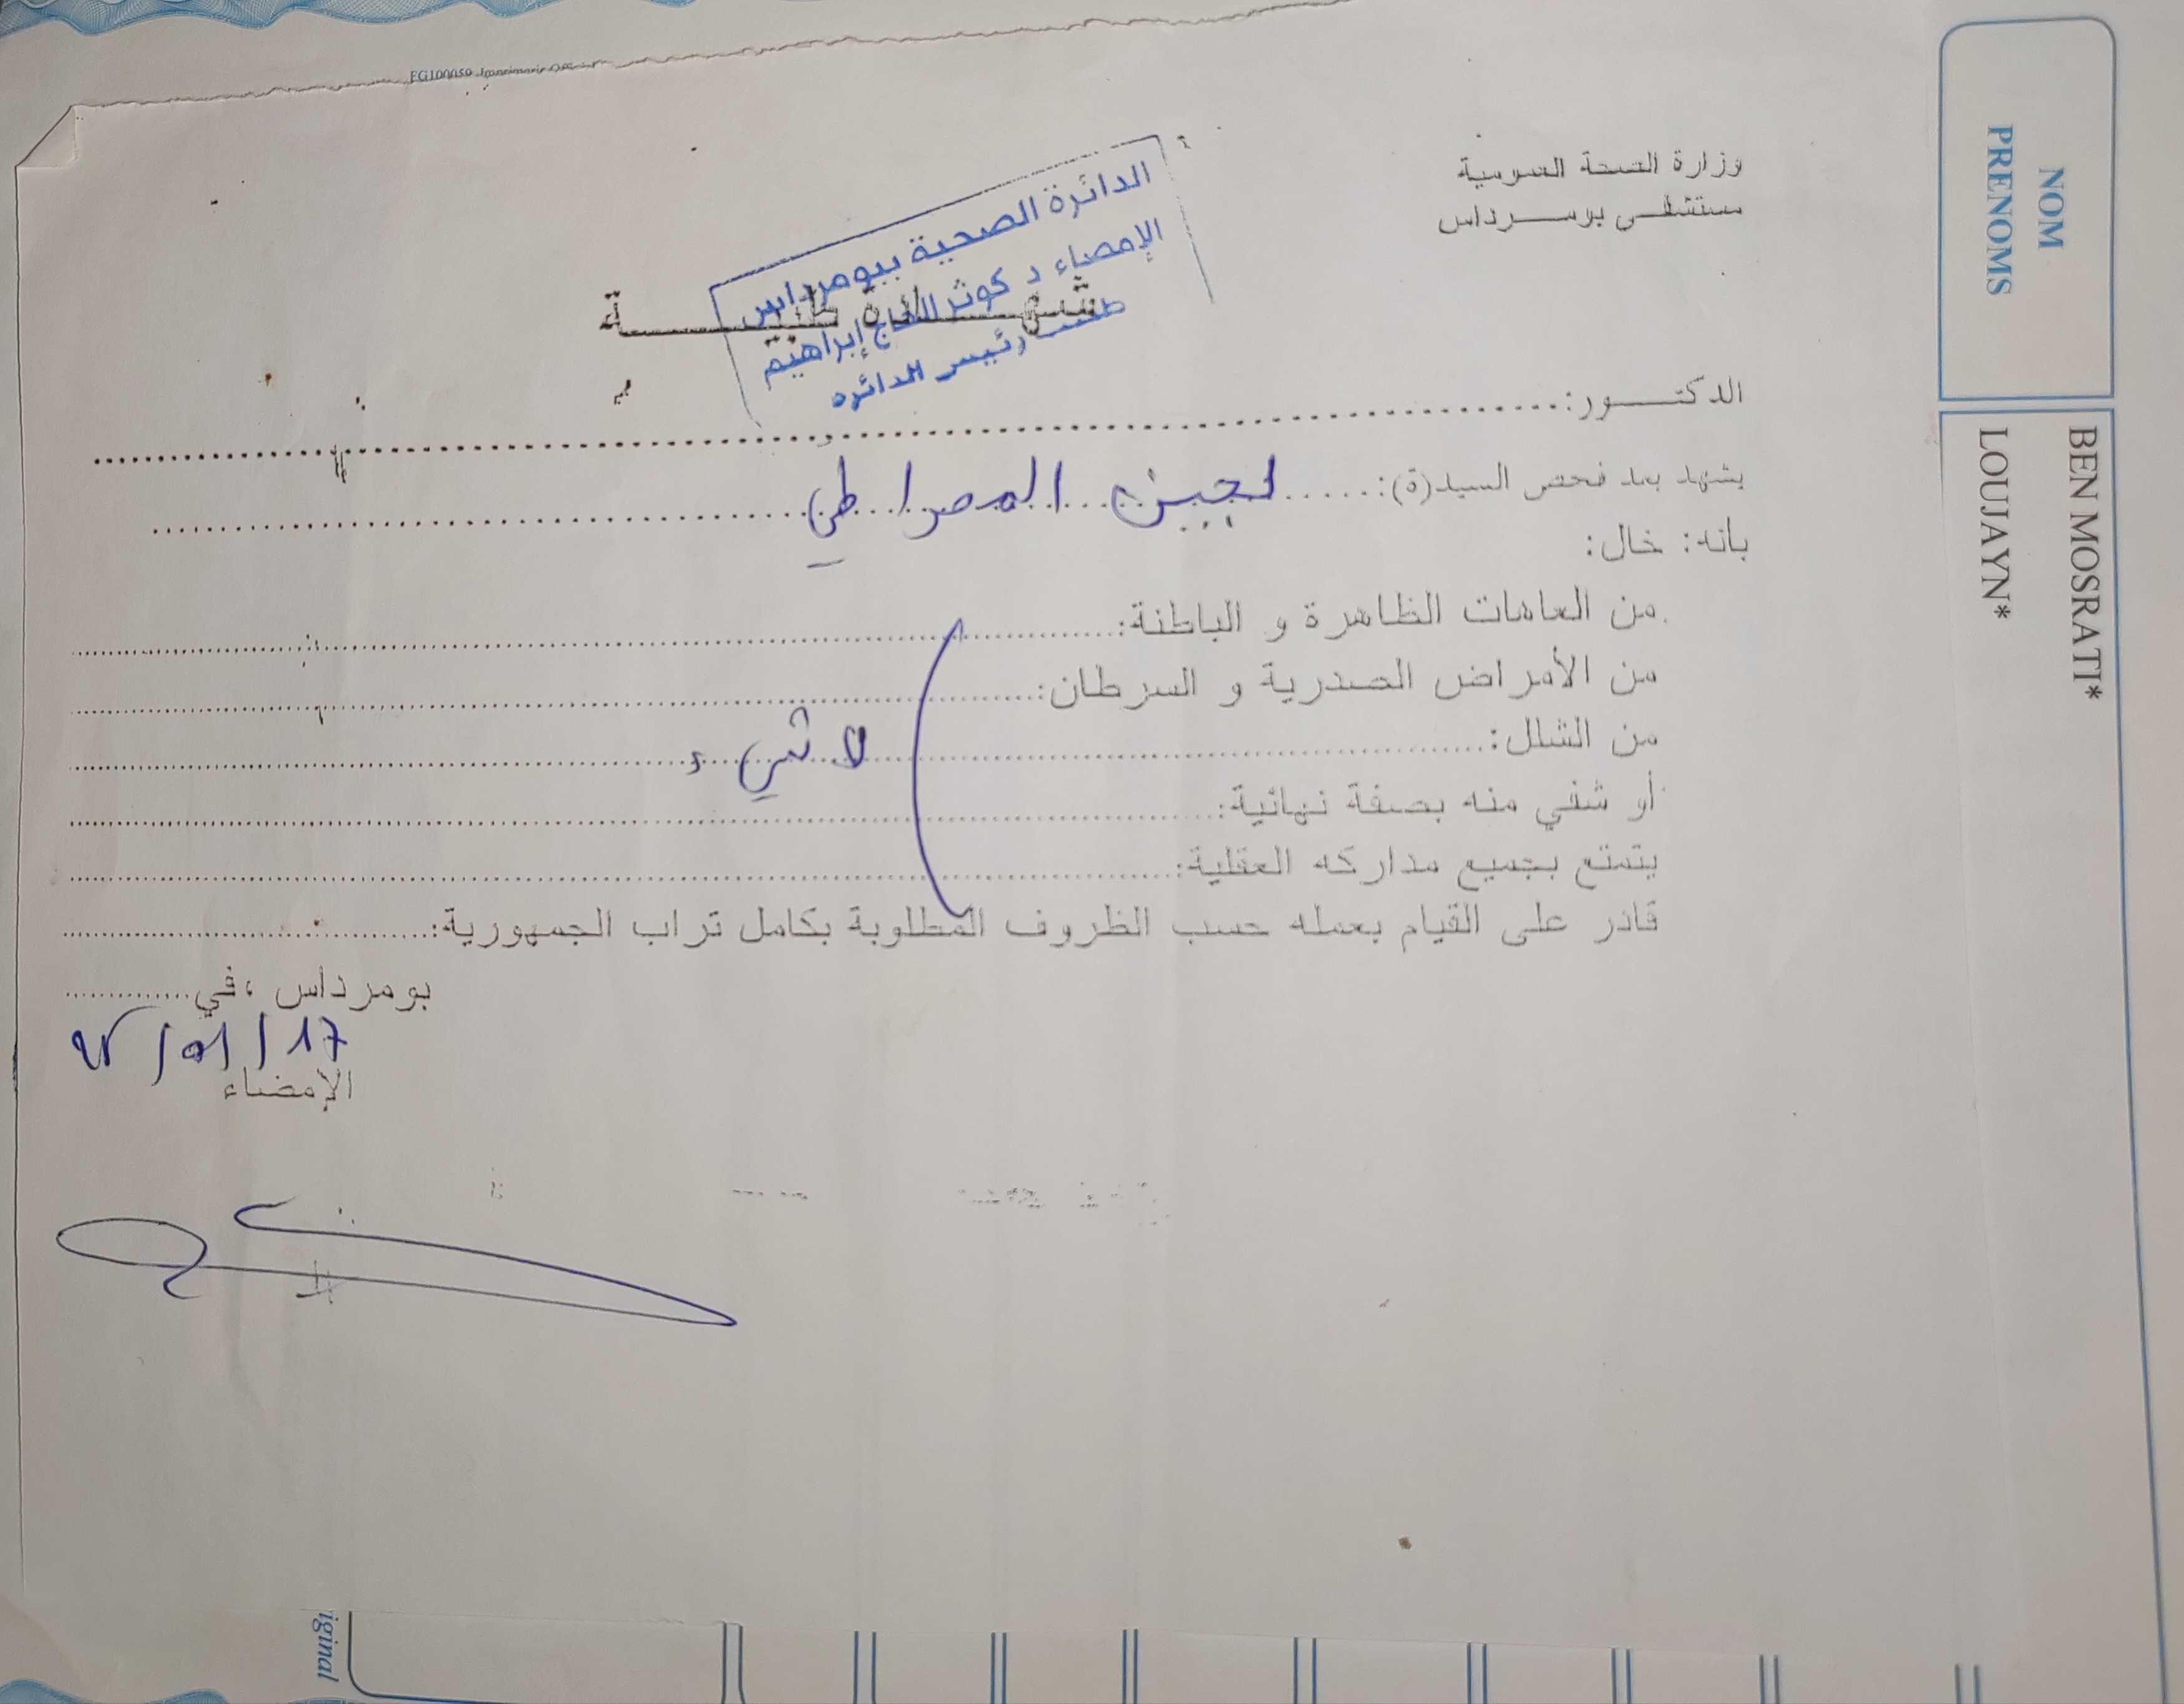 وزارة الصحة العمومية
مستشفى بومرداس
شهادة طبية
الدائرة الصحية ببومرداس
الإمضاء د كوثر الحاج إبراهيم
طبيب رئيس الدائرة
الدكتور:
يشهد بعد فحص السيد(ة): لجين المصراطي
بانه: خال:
من العاهات الظاهرة و الباطنة:
من الأمراض الصدرية و السرطان:
من الشلل:
لا شيء
أو شفي منه بصفة نهائية:
يتمتع بجميع مداركه العقلية:
قادر على القيام بعمله حسب الظروف المطلوبة بكامل تراب الجمهورية:
بومرداس ،في
17/01/
الإمضاء
NOM
PRENOMS
BEN MOSRATI*
LOUJAYN*
EG100059
iginal